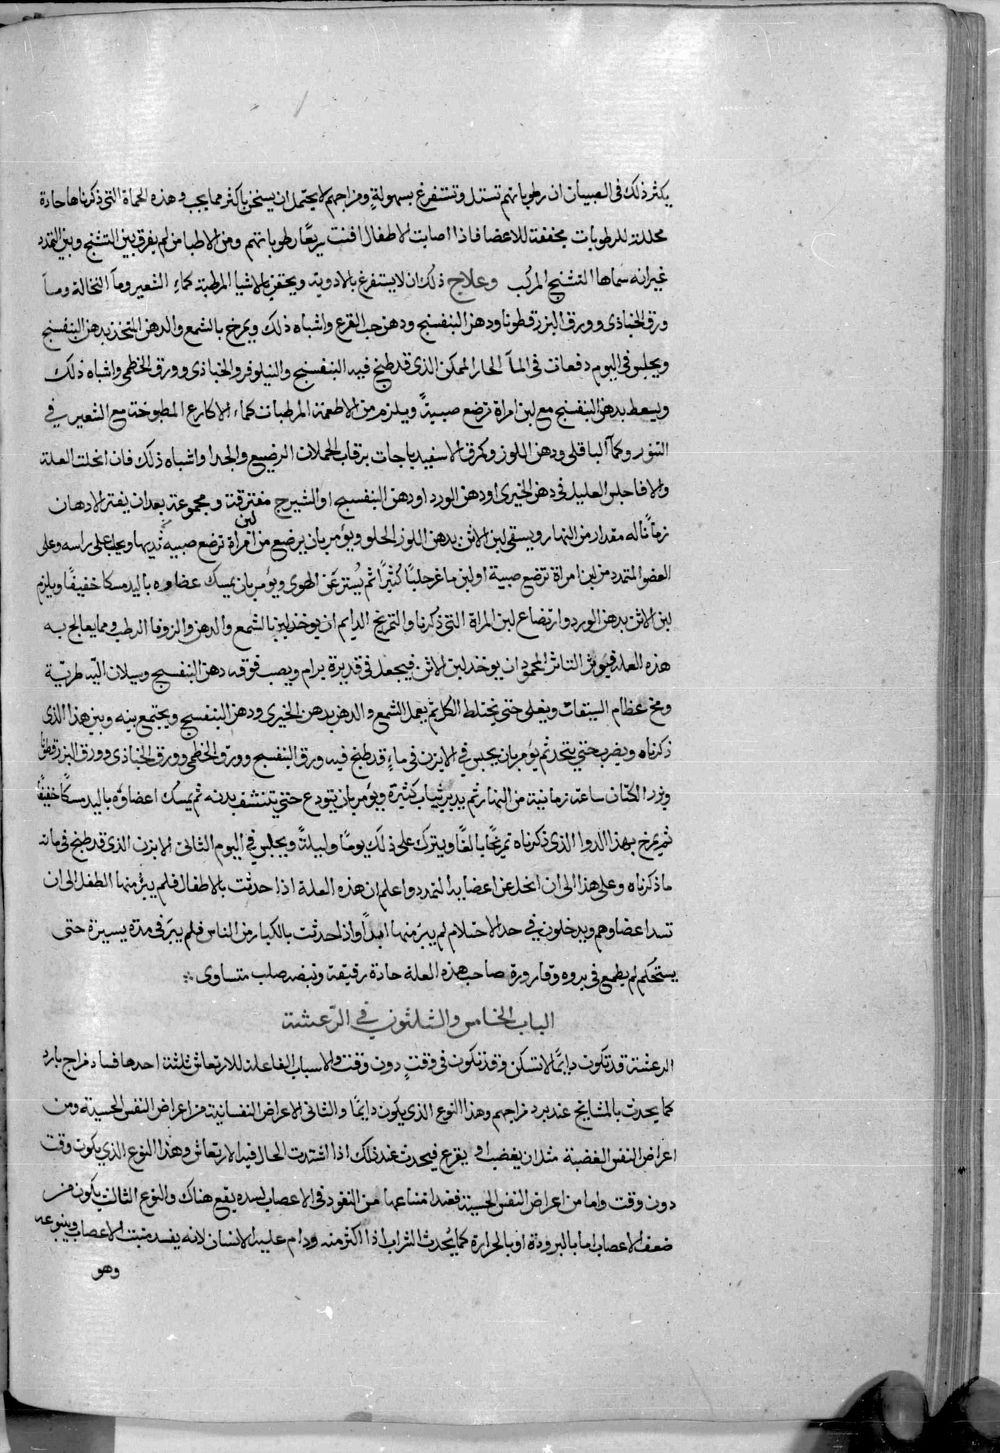 يكثر ذلك في الصبيان ان رطوباتهم تستل وتستفرغ بسهولةٍ ومزاجهم لا يحتمل ان يسخن باكثر مما يجب وهذه الحماة التي ذكرناها حادة
محللة للرطوبات مجففة للاعضا فاذا اصابت الاطفال افنت ريعًا رطوباتهم ومن الاطبا من لم يفرق بين التشنج وبين التمدد
غير انه سماها التشنج المركب وعلاج ذلك ان لا يستفرغ بالادوية ويحقن بالاشيا المرطبة كماء الشعير ومآ النخالة ومآ
ورق الخبازى وورق البزرقطونا ودهن البنفسج ودهن حب القرع واشباه ذلك ويمرخ بالشمع والدهن المتخذ بدهن البنفسج
ويجلس في اليوم دفعات في المآ الحار الممكن الذى قد طبخ فيه البنفسج والنيلوفر والخبازى وورق الخطمي واشباه ذلك
ويسعط بدهن البنفسج مع لبن امراة ترضع صبيةً ويلزم من الاطعمة المرطبات كماء الاكارع المطبوخة مع الشعير في
التنور وكمآ الباقلي ودهن اللوز وكمرق الاسفيدباجات برقاب الحملان الرضيع والجدا واشباه ذلك فان انحلت العلة
والا فاجلس العليل في دهن الخيرى او دهن الورد او دهن البنفسج او الشيرج مفترقة ومجموعة بعد ان يفتر الادهان
زمانًا له مقدار من النهار ويسقى لبن الاتن بدهن اللوز الحلو ويؤمر بان يرضع من لبن امراة ترضع صبيه ثديها ويحلب على راسه وعلى
العضو المتمدد من لبن امراة ترضع صبية او لبن ماعز حلبًا كثيرًا ثم يُستر عن الهوى ويؤمر بان يمسك عضاوه باليد مسكا خفيفًا ويلزم
لبن الاتن بدهن الورد وارتضاع لبن المراة التي ذكرنا والتمريخ الدايم ان يوخذ ليز بالشمع والدهن والزوفا الرطب ومما يعالج به
هذه العلة فيوثر التاثر المحمود ان يوخذ لبن الاتن فيجعل في قديرة برام ويصب فوقه دهن البنفسج وسيلان الية طريّة
ومخ عظام البيقات ويغلى حتى يختلط الكل ثم يعمل الشمع والدهن بدهن الخيرى ودهن البنفسج ويجتمع بينه وبين هذا الذى
ذكرناه ويضرب حتى يتحد ثم يؤمر بان يجلس في الابزن في ماءٍ قد طبخ فيه ورق البنفسج وورق الخطمي وورق الخبازى وورق البزرقطونا
وبزر الكتان ساعة زمانية من النهار ثم يدير بثياب كثيرة ويؤمر بان يتودع حتى يتنشف بدنه ثم يمسك اعضاؤه باليد مسكًا خفيفًا
ثم يمرخ بهذا الدوا الذى ذكرناه تمريخًا بالغًا ويترك على ذلك يومًا وليلةً ويجلس في اليوم الثانى الابزن الذى قد طبخ في مائه
ما ذكرناه وعلى هذا الى ان انحل عن اعضايه التمدد واعلم ان هذه العلة اذا حدثت بالاطفال فلم يبر منها الطفل الى ان
تسد اعضاوهم ويدخلون في حد الاحتلام لم يبر منها ابدًا واذا حدثت بالكبار من الناس فلم يبر في مدة يسيرة حتى
يستحكم لم يطمع في بروه وقارورة صاحب هذه العلة حادة رقيقة ونبضه صلب متساوى
الباب الخامس والثلثون في الرّعشة
الرعشة قد تكون دايمًا لا تسكن وقد تكون في وقتٍ دون وقت والاسباب الفاعلة للارتعاش ثلثة احدها فساد مزاج بارد
كما يحدث بالمشايخ عند برد مزاجهم وهذا النوع الذى يكون دايمًا والثانى الاعراض النفسانية من اعراض النفس الحسية ومن
اعراض النفس الغضبية مثل ان يغضب او يفزع فيحدث عند ذلك اذا اشتدت الحال فيه الارتعاش وهذا النوع الذى يكون وقت
دون وقت واما من اعراض النفس الحسية فعند امتناعها من النفوذ في الاعصاب لسده يقع هناك والنوع الثالث يكون من
ضعف الاعصاب اما بالبرودة او بالحرارة كما يُحدث الشراب اذا اكثر منه ودام عليه الانسان لانه يفسد منبت الاعصاب وينبوعه
وهو